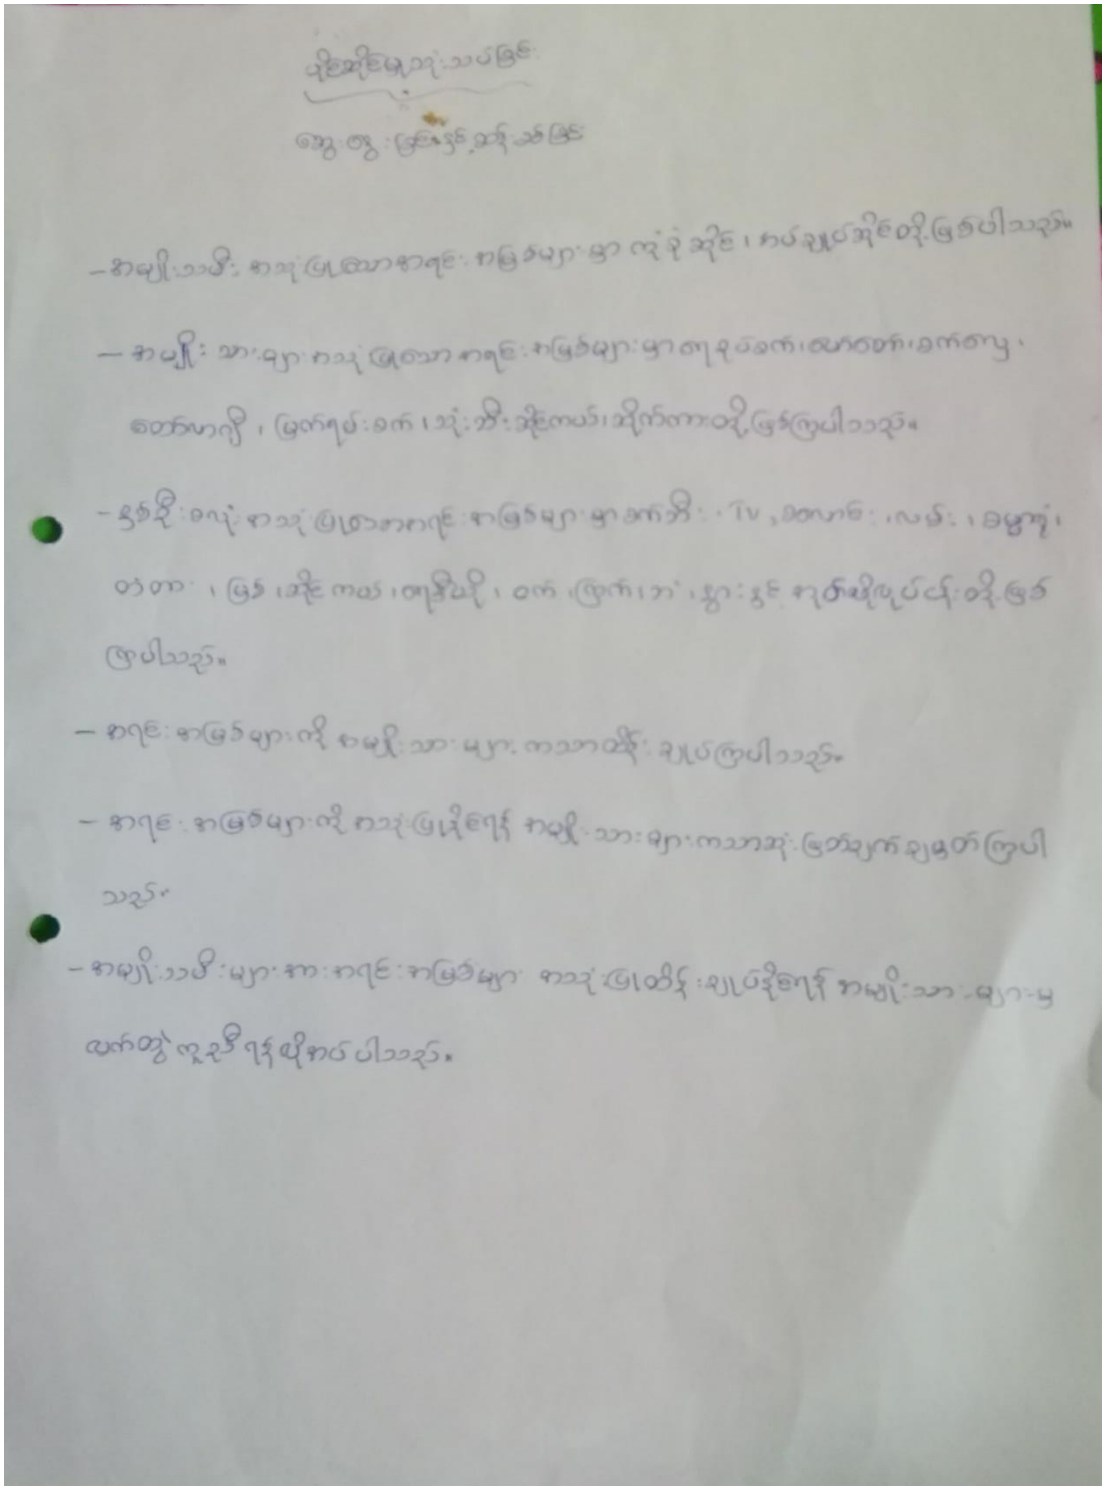 ပိုင်ဆိုင်မှုသုံးသပ်ခြင်း
ဆွေးနွေးခြင်းနှင့်ဆန်းစစ်ခြင်း
- အမျိုးသမီး အသုံးပြုသောအရင်းအမြစ်များမှာ ကုန်စုံဆိုင်၊ အပ်ချုပ်ဆိုင်တို့ဖြစ်ပါသည်။
- အမျိုးသားများအသုံးပြုသောအရင်းအမြစ်များမှာ စက်လှေ၊
တော်လာဂျီ၊ မြက်ရိတ်စက်၊ သုံးဘီးဆိုင်ကယ်၊ ဆိုက်ကားတို့ဖြစ်ကြပါသည်။
- နှစ်ဦးစလုံးအသုံးပြုသောအရင်းအမြစ်များမှာ စက်ဘီး၊ TV၊ ၊ လမ်း၊
တံတား၊ မြစ်၊ ဆိုင်ကယ်၊ ရေချိုး၊ ဝက်၊ ကြက်၊ ဘဲ၊ နွားနှင့် လုပ်ငန်းတို့ဖြစ်
ကြပါသည်။
- အရင်းအမြစ်များကို အမျိုးသားများကသာထိန်းချုပ်ကြပါသည်။
- အရင်းအမြစ်များကို အသုံးပြုနိုင်ရန် အမျိုးသားများကသာဆုံးဖြတ်ချက်ချမှတ်ကြပါ
သည်။
- အမျိုးသမီးများအားအရင်းအမြစ်များ အသုံးပြုထိန်းချုပ်နိုင်ရန် အမျိုးသားများမှ
လက်တွဲကူညီရန်လိုအပ်ပါသည်။